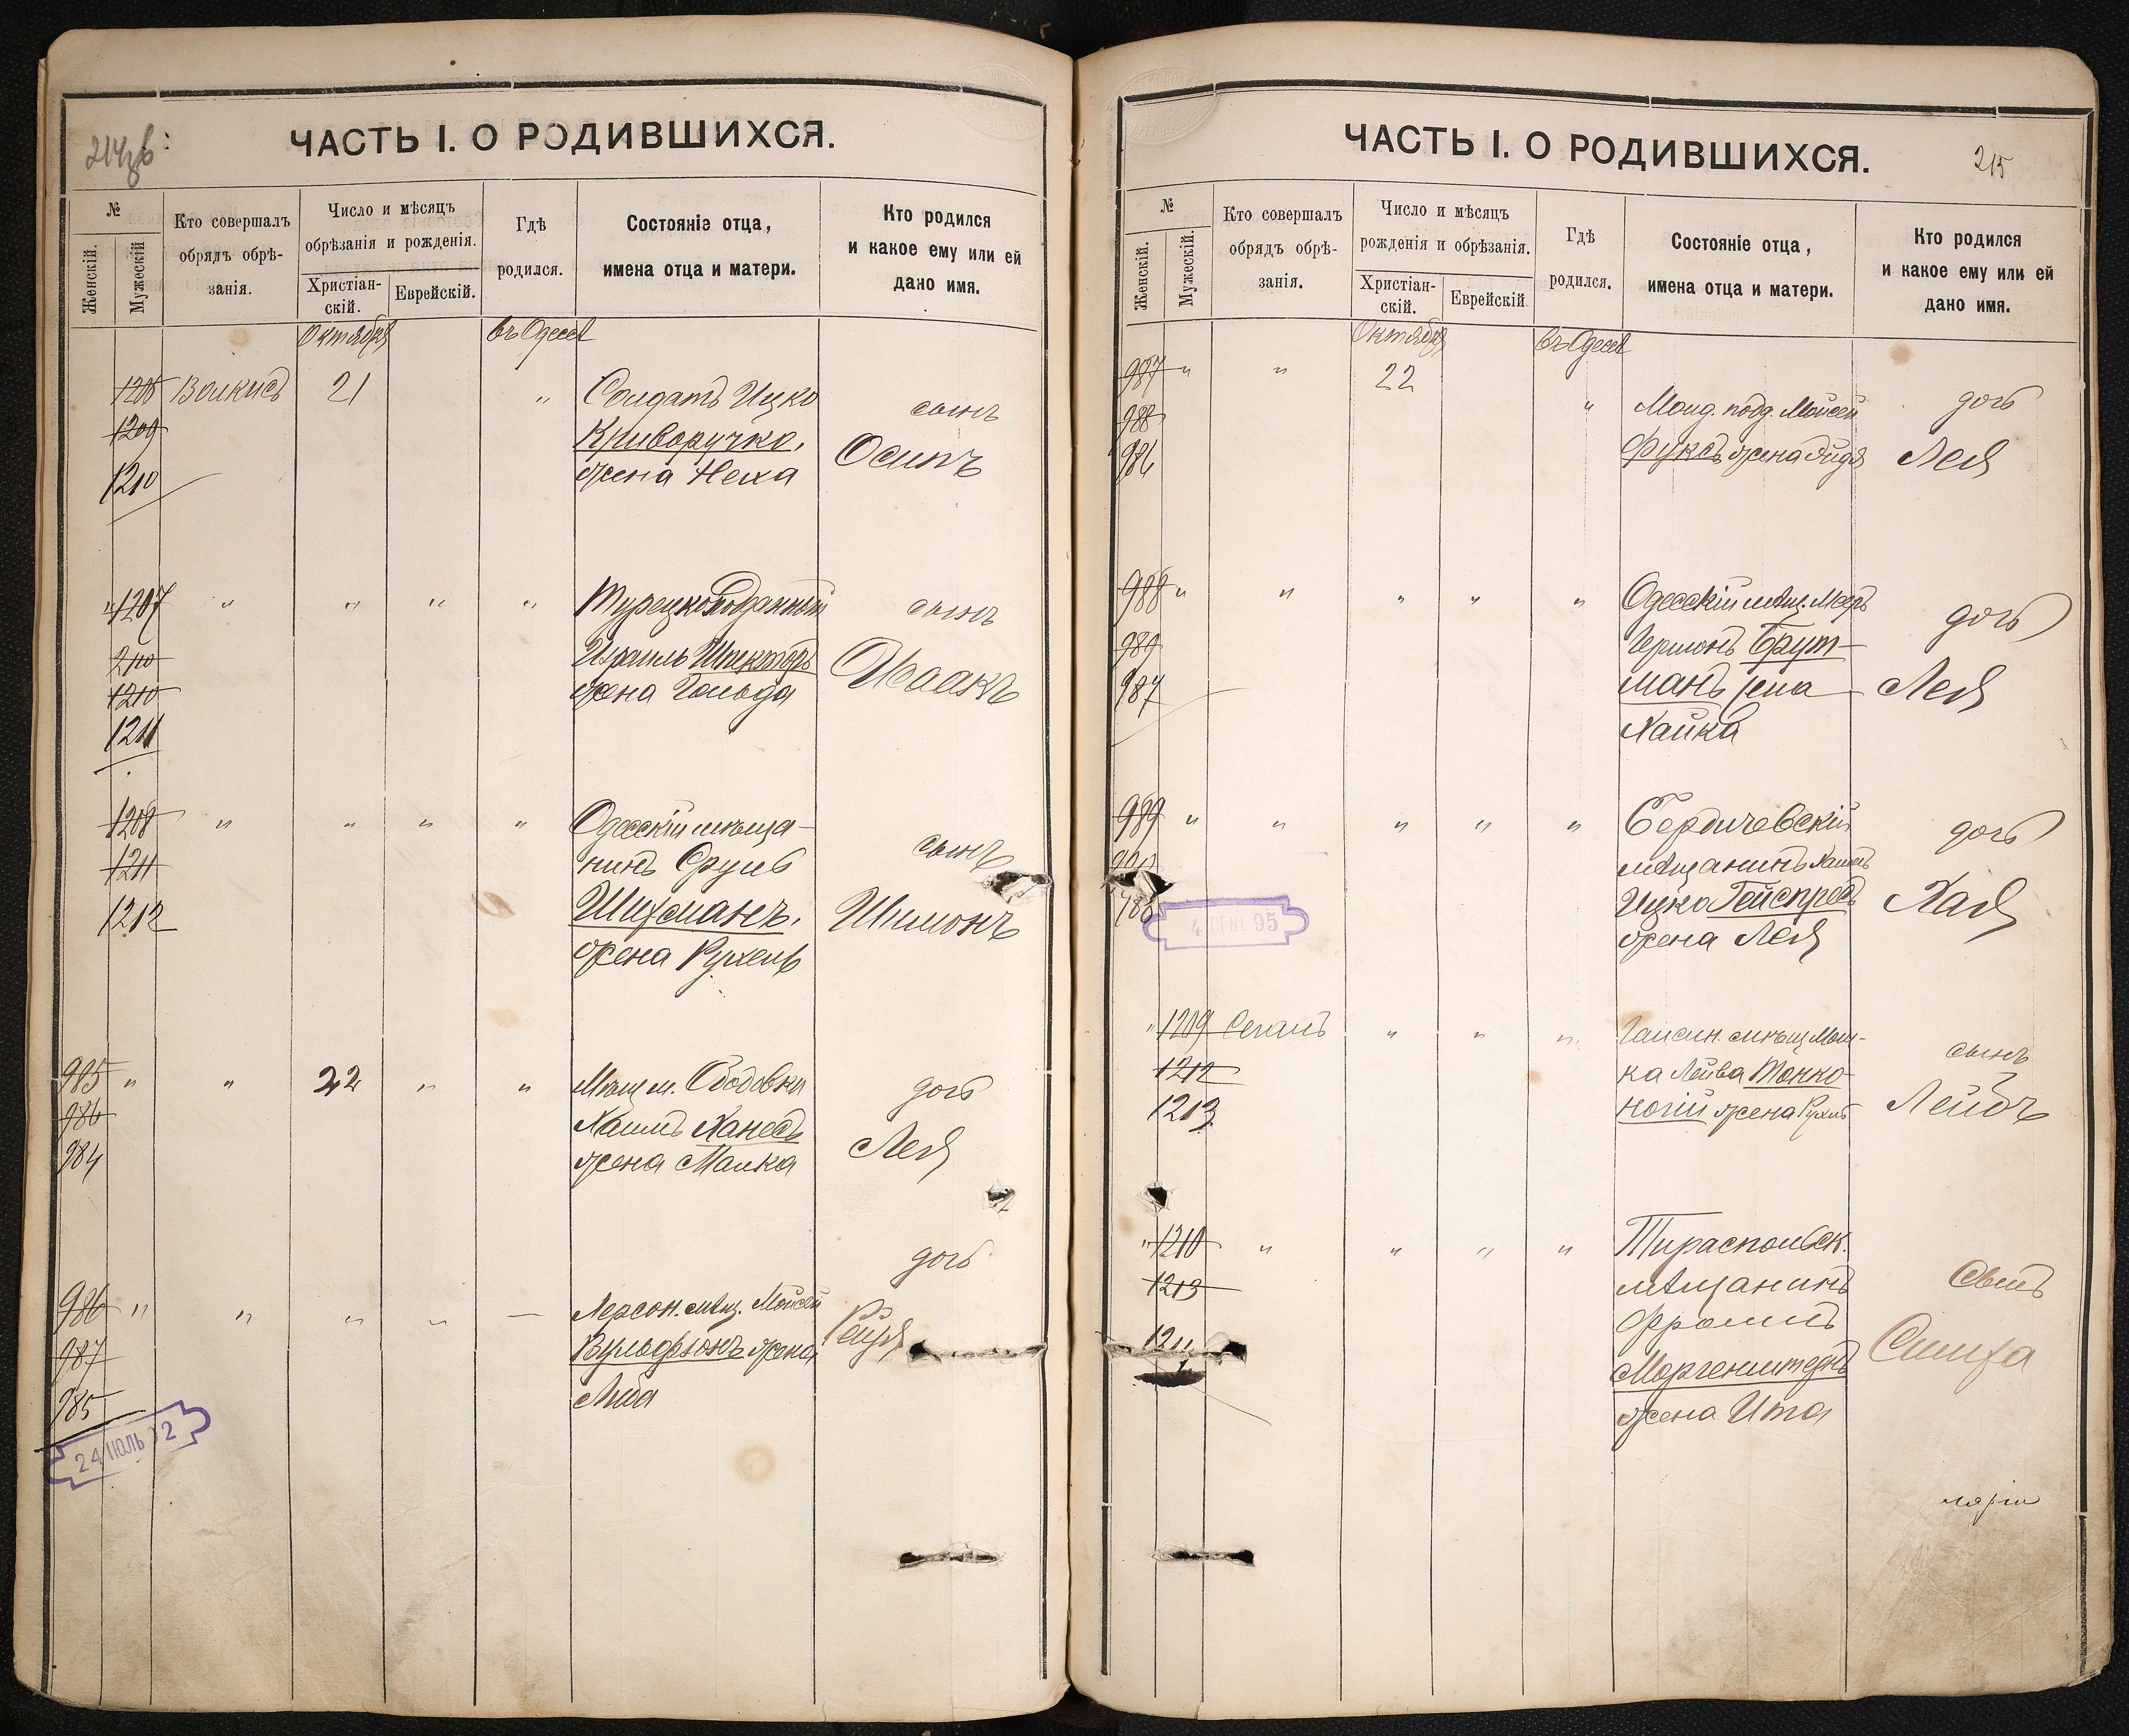 214об
ЧАСТЬ I. О РОДИВШИХСЯ.
№
Женскій.
Мужескій
Кто совершалъ
обрядъ обрѣ-
занія.
Число и мѣсяцъ
обрѣзанія и рожденія.
Христіан-
скій.
Еврейскій.
Гдѣ
родился.
Состояніе отца,
имена отца и матери.
Кто родился
и какое ему или ей
дано имя.
Октября
въ Одессѣ
1206 Волкисъ 21 "
1209
1210
Солдатъ Ицко
Криворучко,
жена Неха
сынъ
Осипъ
" 1207 " " " "
1210
1211
Турецкоподданный
Израиль Шпекторъ
жена Гольда
сынъ
Исаакъ
1208 " " " "
1211
1212
Одесскій мѣща-
нинъ Сруль
Шихманъ,
жена Рухель
сынъ
Шимонъ
985 " " 22 " "
986
984
Мѣщ. м. Ободовки
Хаимъ Ханесъ
жена Малка
дочь
Лея
986 " " " " —
987
985
Херсон. мѣщ. Мойсей
Вульфсонъ жена
Либа
дочь
Рейзя
24 ИЮЛЬ
ЧАСТЬ I. О РОДИВШИХСЯ.
215
№
Женскій.
Мужескій.
Кто совершалъ
обрядъ обрѣ-
занія.
Число и мѣсяцъ
рожденія и обрѣзанія.
Христіан-
скій.
Еврейскій
Гдѣ
родился.
Состояніе отца,
имена отца и матери.
Кто родился
и какое ему или ей
дано имя.
Октября
въ Одессѣ
987 " " 22 "
988
986
Молд. подд. Мойсей
Фуксъ жена
дочь
Лея
988 " " " " "
989
987
Одесскій мѣщ. Мееръ
Гершонъ Брут-
манъ жена
Хайка
дочь
Лея
989 " " " " "
990
988
Бердичевскій
мѣщанинъ Хаимъ
Ицко
жена Лея
дочь
Хая
4 95
" 1209 " " "
1212
1213
Гайсин. мѣщ. Мош-
ка Лейва Тонко-
ногій жена Рухль
сынъ
Лейбъ
" 1210 " " " "
1213
Тираспольск.
мѣщанинъ
Фроимъ
Моргенштернъ
жена Ита
Симха